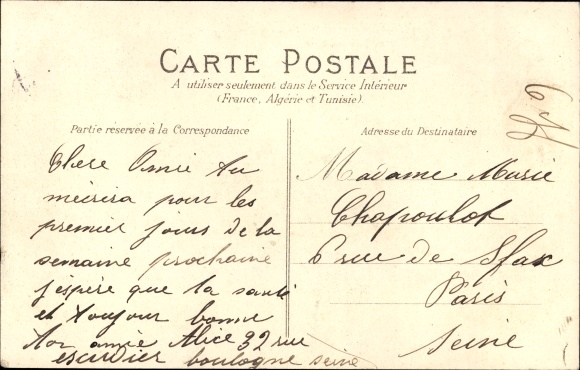 CARTE POSTALE
A utiliser seulement dans le Service Intérieur
(France, Algérie et Tunisie).
Partie réservée à la Correspondance
Chere Amie tu
mécrira pour les
premier jours de la
semaine prochaine
j'espère que ta santé
et toujour bonne
ton amie Alice 32 rue
escudier boulogne seine
Adresse du Destinataire
Madame Marie
Chapoulot
6 rue de Sfax
Paris
Seine